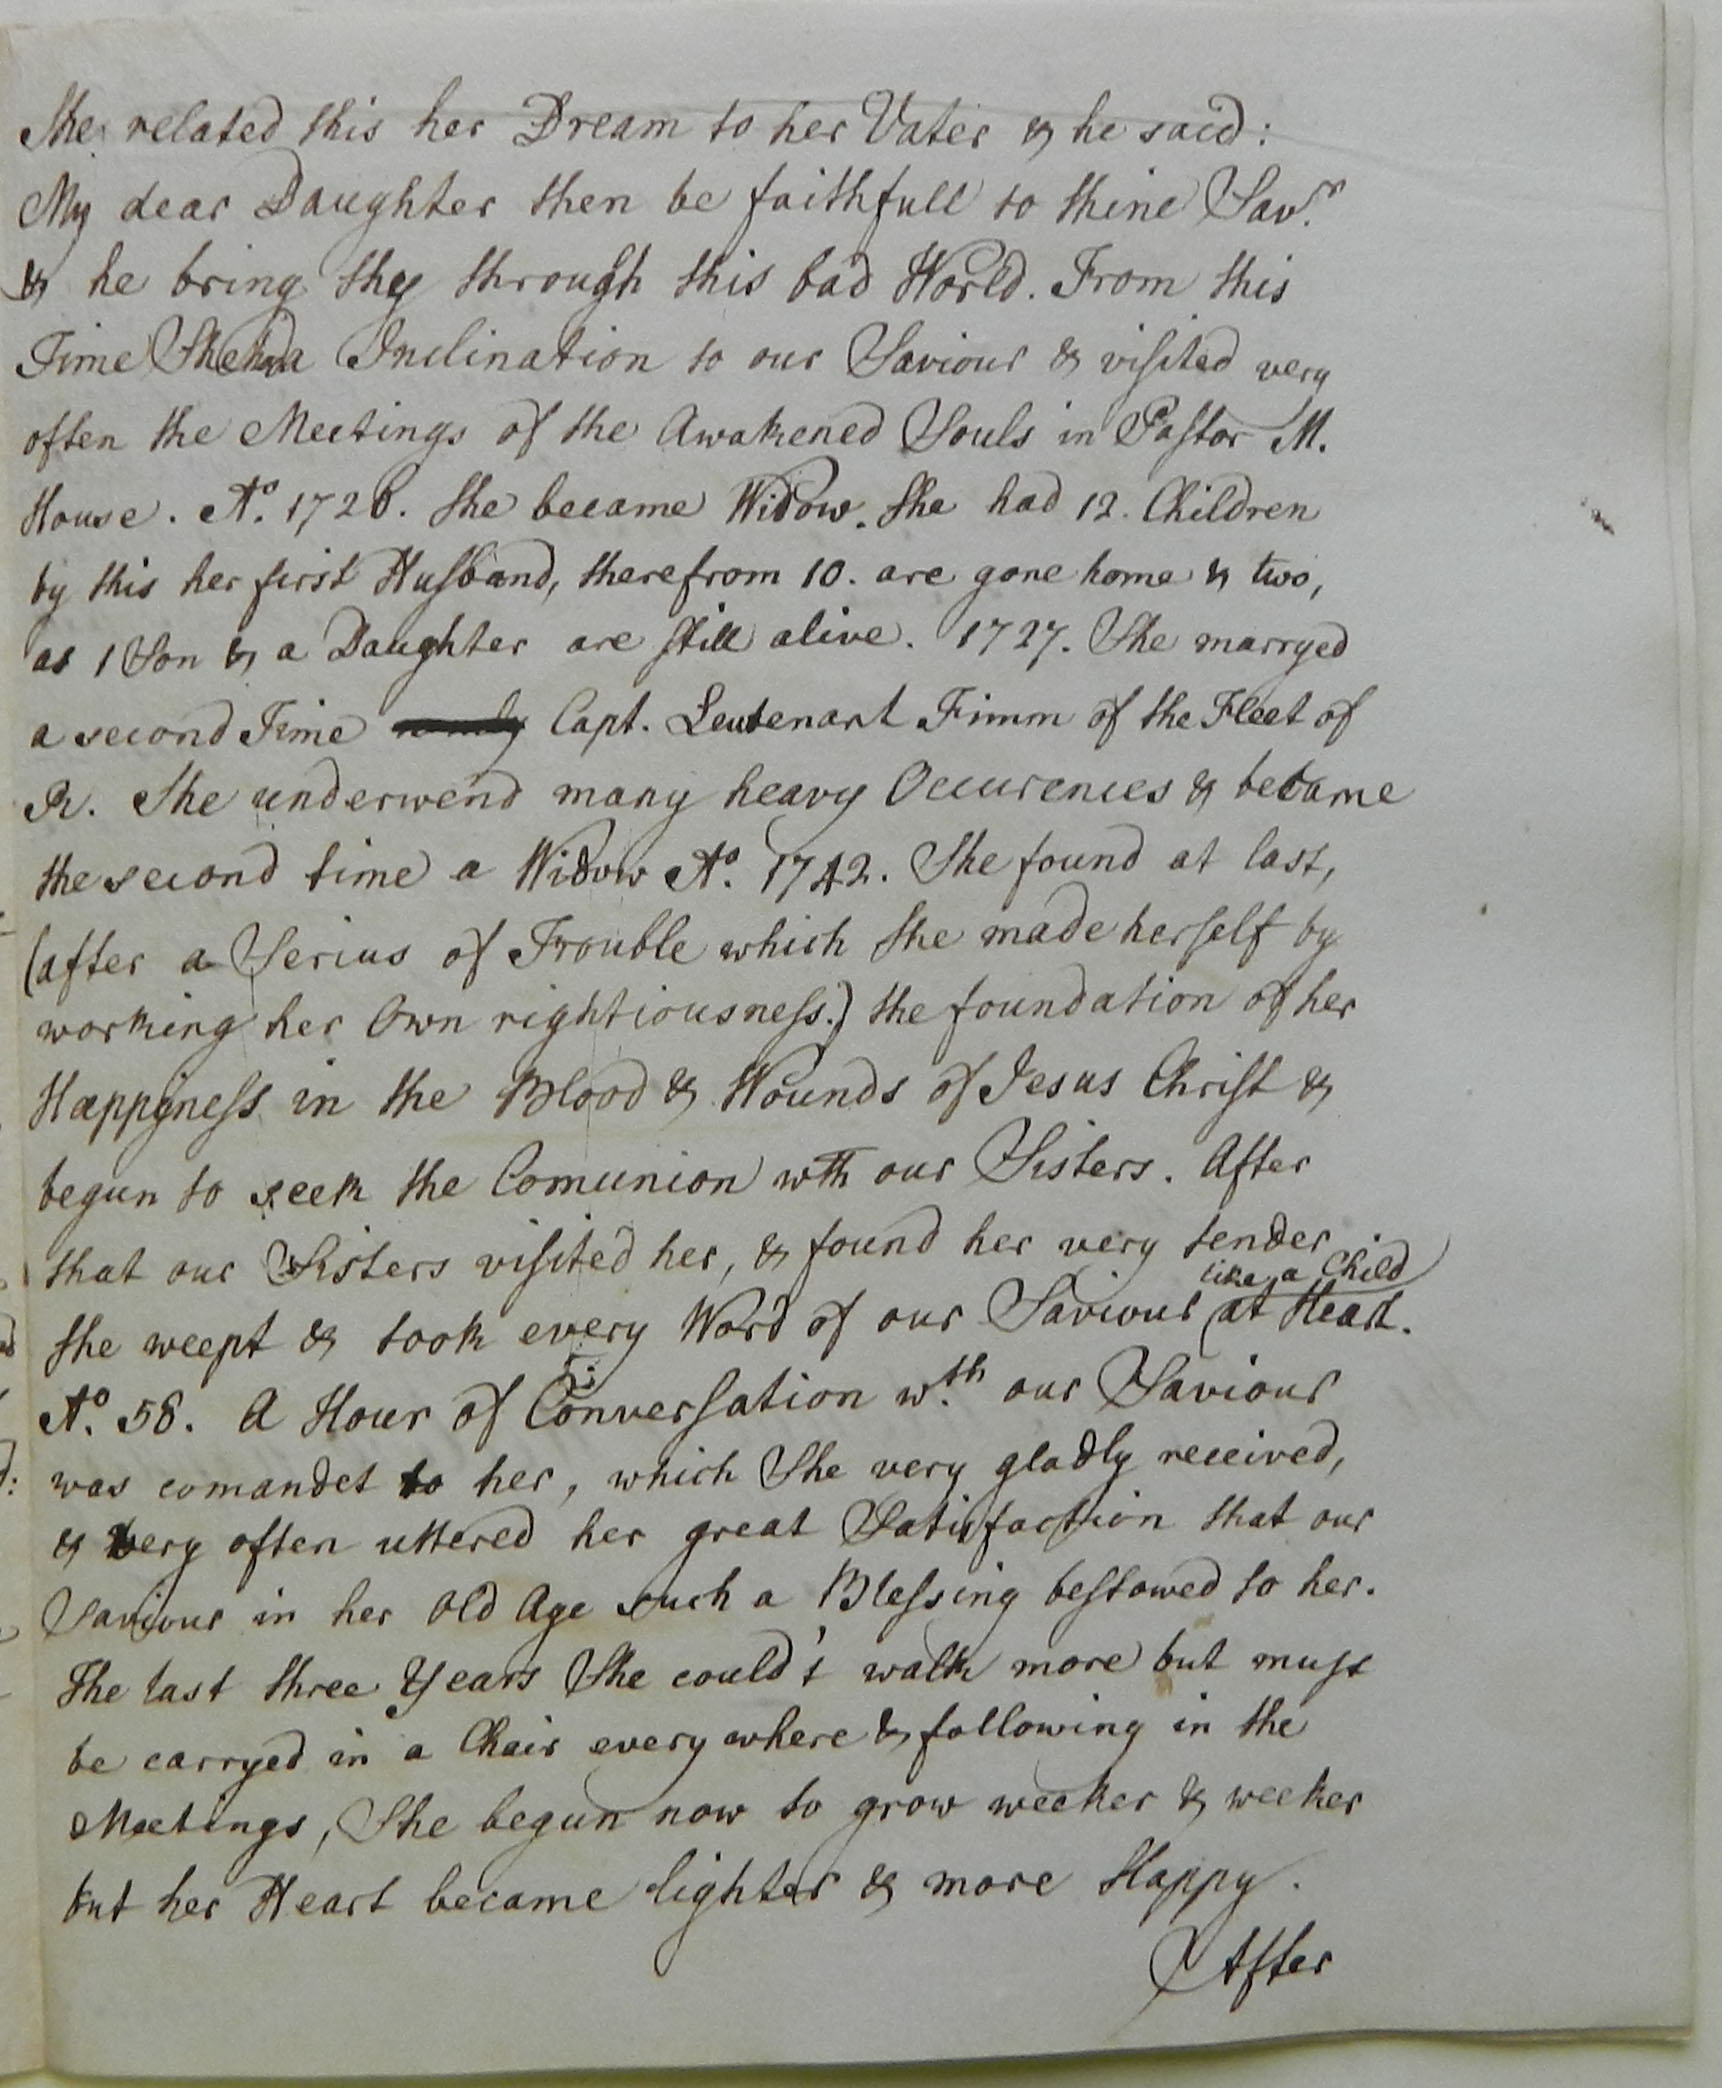 She related this her Dream to her Vater & he said:
My dear Daughter then be faithfull to thine Savr.
& he bring thy through this bad World. From this
Time She had a Inclination to our Saviour & visited very
often the Meetings of the Awakened Souls in Pastor M.
House. Ao. 1726. She became Widow. She had 12. Children
by this her first Husband, therefrom 10. are gone home & two,
as 1 Son & a Daughter are still alive. 1727. She marryed
a second Time Capt. Leutenant Timm of the Fleet of
R. She underwend many heavy Occurences & became
the second time a Widow Ao. 1742. She found at last,
(after a Serius of Trouble which she made herself by
working her Own rightiousness.) the foundation of her
Happyness in the Blood & Wounds of Jesus Christ &
begun to seek the Comunion wth our Sisters. After
that our Sisters visited her, & found her very tender
like a Child
she weept & took every Word of our Saviour at Heart.
Ao. 58. A Hour of Conversation wth. our Saviour
was comandet to her, which She very gladly received,
& very often uttered her great Satisfaction that our
Saviour in her Old Age such a Blessing bestowed to her.
The last three Years She could't walk more but must
be carryed in a Chair every where & following in the
Meetings, She begun now to grow weeker & weeker
but her Heart became lighter & more Happy.
After